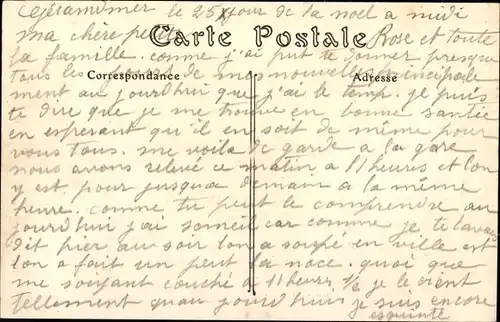 Gérardmer le 25 jour de la noel a midi
ma chère petite Rose et toute
Carte Postale
la famille. comme j'ai put te donner presque
tous les de mes nouvelles principale
Correspondance
Adresse
ment au jourd'hui que j'ai le temp. je puis
te dire que je me trouve en bonne santée
en esperant qu'il en soit de même pour
vous tous. me voila de garde a la gare
nous avons relevé ce matin a 11 heures et lon
y est pour jusqua demain a la même
heure. comme tu peut le comprendre au
jourd'hui j'ai someil car comme je te lavais
dit hier au soir lon a soupé en ville et
lon a fait un peut la noce. quoi que
me soyant couché a 11 heures ½ je le vient
tellement quau jourd'hui je suis encore